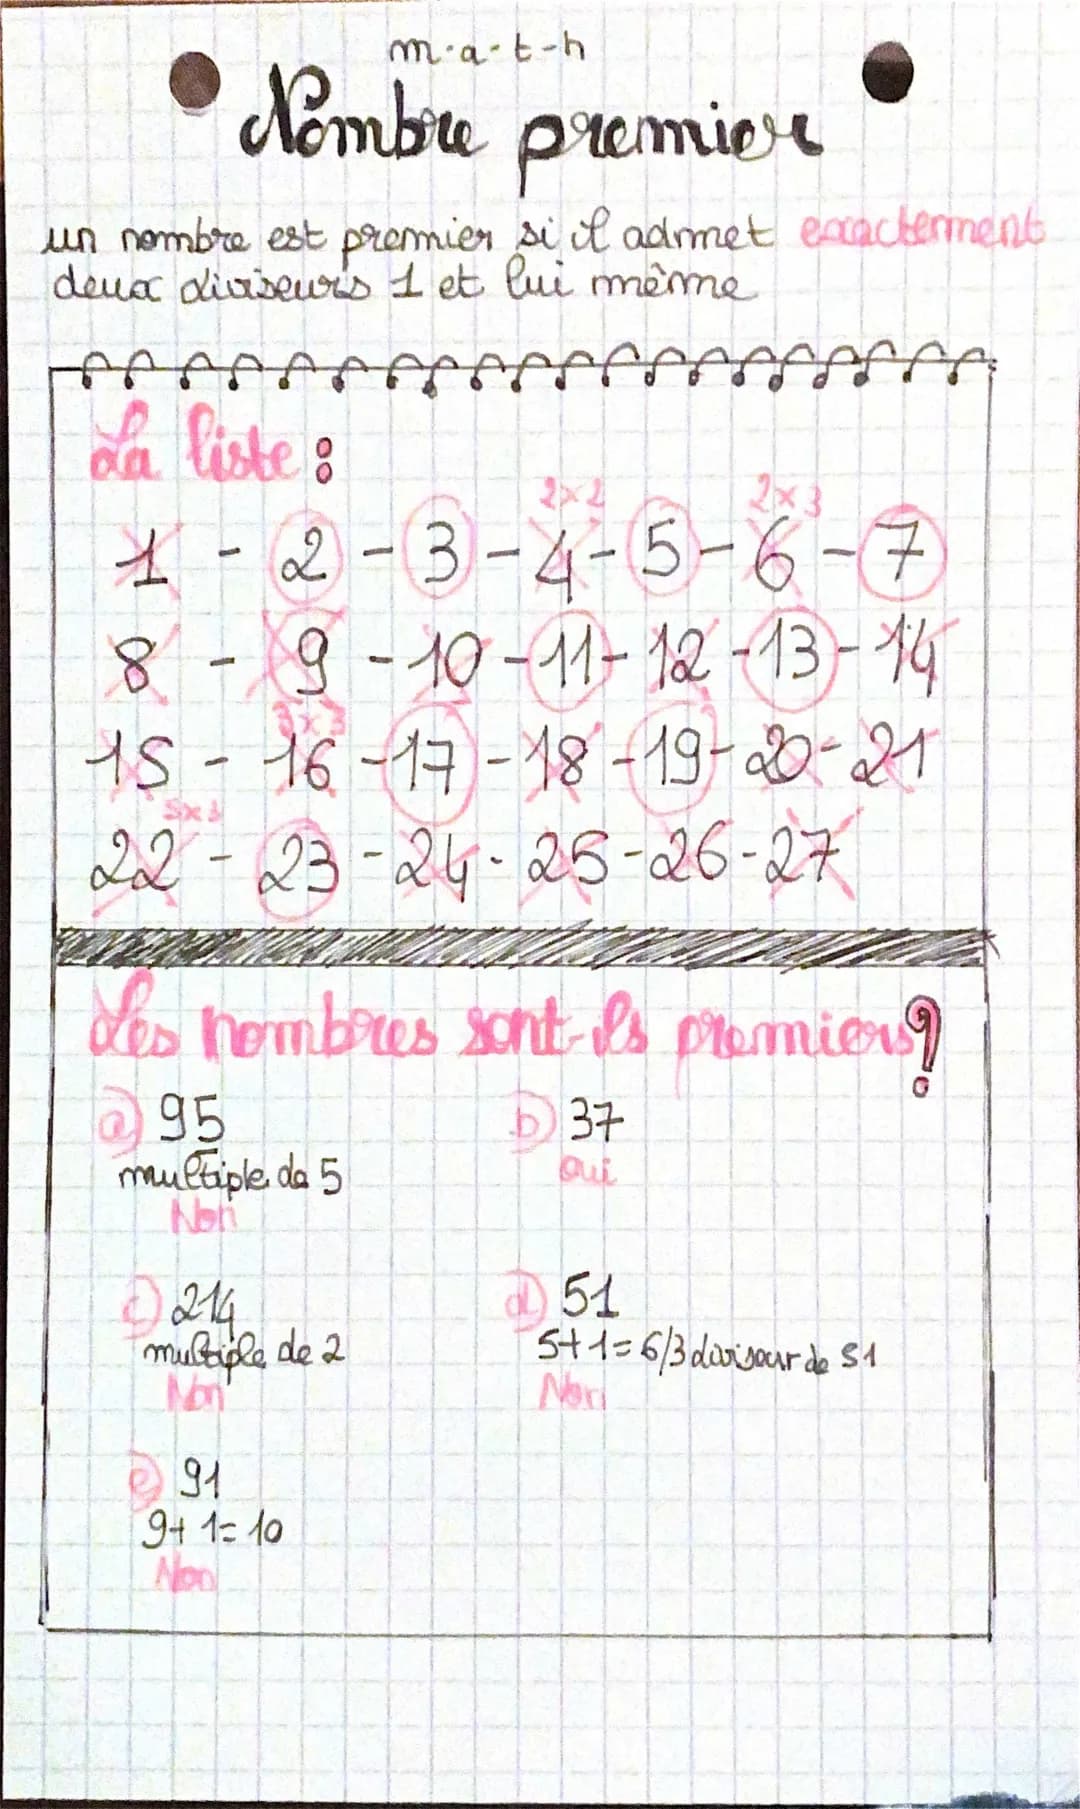 m-a-t-h
Nombre premier
un nombre est premier si il admet exactement
deux diviseurs 1 et lui même
La liste :
2×2 2×3
1 - 2 - 3 - 4 - 5 - 6 - 7
8 - 9 - 10 - 11 - 12 - 13 - 14
3×3
15 - 16 - 17 - 18 - 19 - 20 - 21
5×3
22 - 23 - 24 - 25 - 26 - 27
Les nombres sont-ils premiers ?
a) 95 b) 37
multiple de 5 oui
Non
c) 214 d) 51
multiple de 2 5+1=6/3 diviseur de 51
Non Non
e) 91
9+1=10
Non